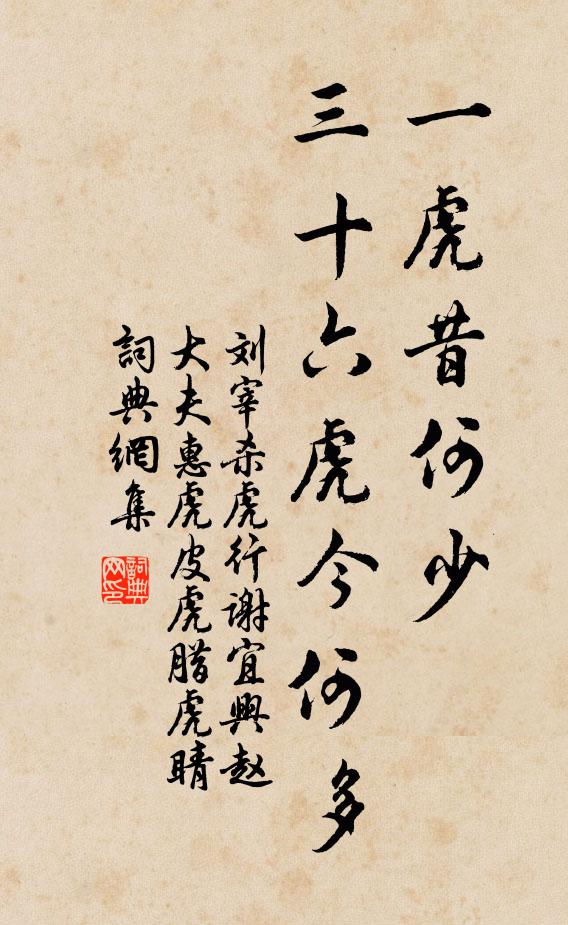 一虎昔何少
三十六虎今何多
刘宰杀虎行谢宜興赵
大夫惠虎皮虎腊虎睛
詞典網集
詞典
网印